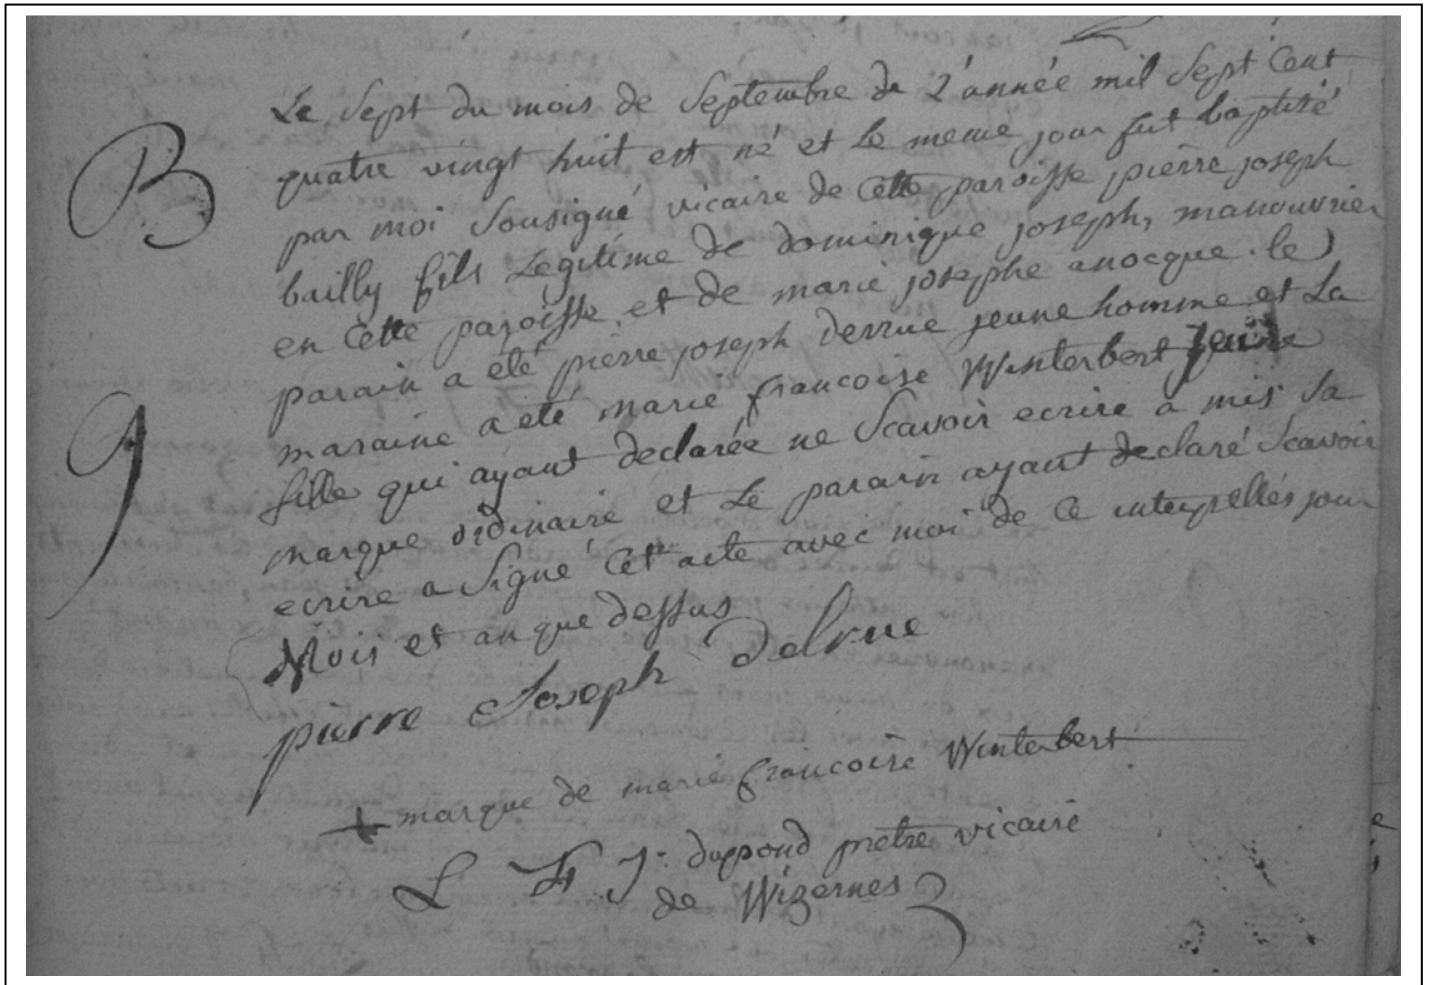 B
Le Sept du mois de Septembre de L'année mil Sept Cent
quatre vingt huit est né et Le meme jour fut baptisé
par moi Sousigné vicaire de Cette paroisse pierre joseph
bailly fils Legitime de dominique joseph, manouvrier
en Cette paroisse, et de marie josephe anocque. le
parain a été pierre joseph derrue jeune homme et La
9
maraine a eté marie francoise Winterbert jeune
fille qui ayant declarée ne Scavoir ecrire a mis Sa
marque ordinaire et Le parain ayant declaré Scavoir
ecrire a Signé Cet acte avec moi de Ce interpellés jour
Mois et an que dessus
pierre Joseph Delrue
+ marque de marie francoise Winterbert
L F J. duppond prêtre vicaire
de Wizernes